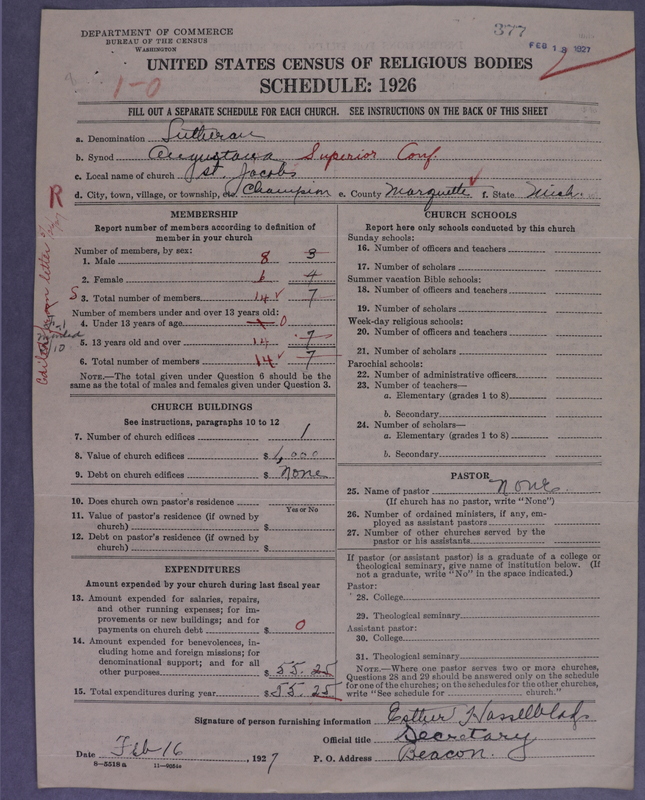 DEPARTMENT OF COMMERCE
BUREAU OF THE CENSUS
WASHINGTON
377
FEB 18 1927
UNITED STATES CENSUS OF RELIGIOUS BODIES
1-0
SCHEDULE: 1926
FILL OUT A SEPARATE SCHEDULE FOR EACH CHURCH. SEE INSTRUCTIONS ON THE BACK OF THIS SHEET
a. Denomination Lutheran
b. Synod Augustana Superior Conf.
c. Local name of church St. Jacobs
d. City, town, village, or township, etc. Champion e. County Marquette f. State Mich.
R
MEMBERSHIP
Report number of members according to definition of
member in your church
Number of members, by sex:
1. Male 8 3
2. Female 6 4
S 3. Total number of members 14 7
Number of members under and over 13 years old:
4. Under 13 years of age 0
5. 13 years old and over 14 7
6. Total number of members 14 7
NOTE.—The total given under Question 6 should be the
same as the total of males and females given under Question 3.
CHURCH BUILDINGS
See instructions, paragraphs 10 to 12
7. Number of church edifices 1
8. Value of church edifices $ 1,000
9. Debt on church edifices $ None
10. Does church own pastor's residence
Yes or No
11. Value of pastor's residence (if owned by
church) $
12. Debt on pastor's residence (if owned by
church) $
EXPENDITURES
Amount expended by your church during last fiscal year
13. Amount expended for salaries, repairs,
and other running expenses; for im-
provements or new buildings; and for
payments on church debt $ 0
14. Amount expended for benevolences, in-
cluding home and foreign missions; for
denominational support; and for all
other purposes $ 55.25
15. Total expenditures during year $ 55.25
CHURCH SCHOOLS
Report here only schools conducted by this church
Sunday schools:
16. Number of officers and teachers
17. Number of scholars
Summer vacation Bible schools:
18. Number of officers and teachers
19. Number of scholars
Week-day religious schools:
20. Number of officers and teachers
21. Number of scholars
Parochial schools:
22. Number of administrative officers
23. Number of teachers—
a. Elementary (grades 1 to 8)
b. Secondary
24. Number of scholars—
a. Elementary (grades 1 to 8)
b. Secondary
PASTOR
25. Name of pastor None
(If church has no pastor, write "None")
26. Number of ordained ministers, if any, em-
ployed as assistant pastors
27. Number of other churches served by the
pastor or his assistants
If pastor (or assistant pastor) is a graduate of a college or
theological seminary, give name of institution below. (If
not a graduate, write "No" in the space indicated.)
Pastor:
28. College
29. Theological seminary
Assistant pastor:
30. College
31. Theological seminary
NOTE.—Where one pastor serves two or more churches,
Questions 28 and 29 should be answered only on the schedule
for one of the churches; on the schedules for the other churches,
write "See schedule for church."
Signature of person furnishing information Esther Hasselblad
Official title Secretary
Date Feb 16, 1927 P. O. Address Beacon.
8-5518a